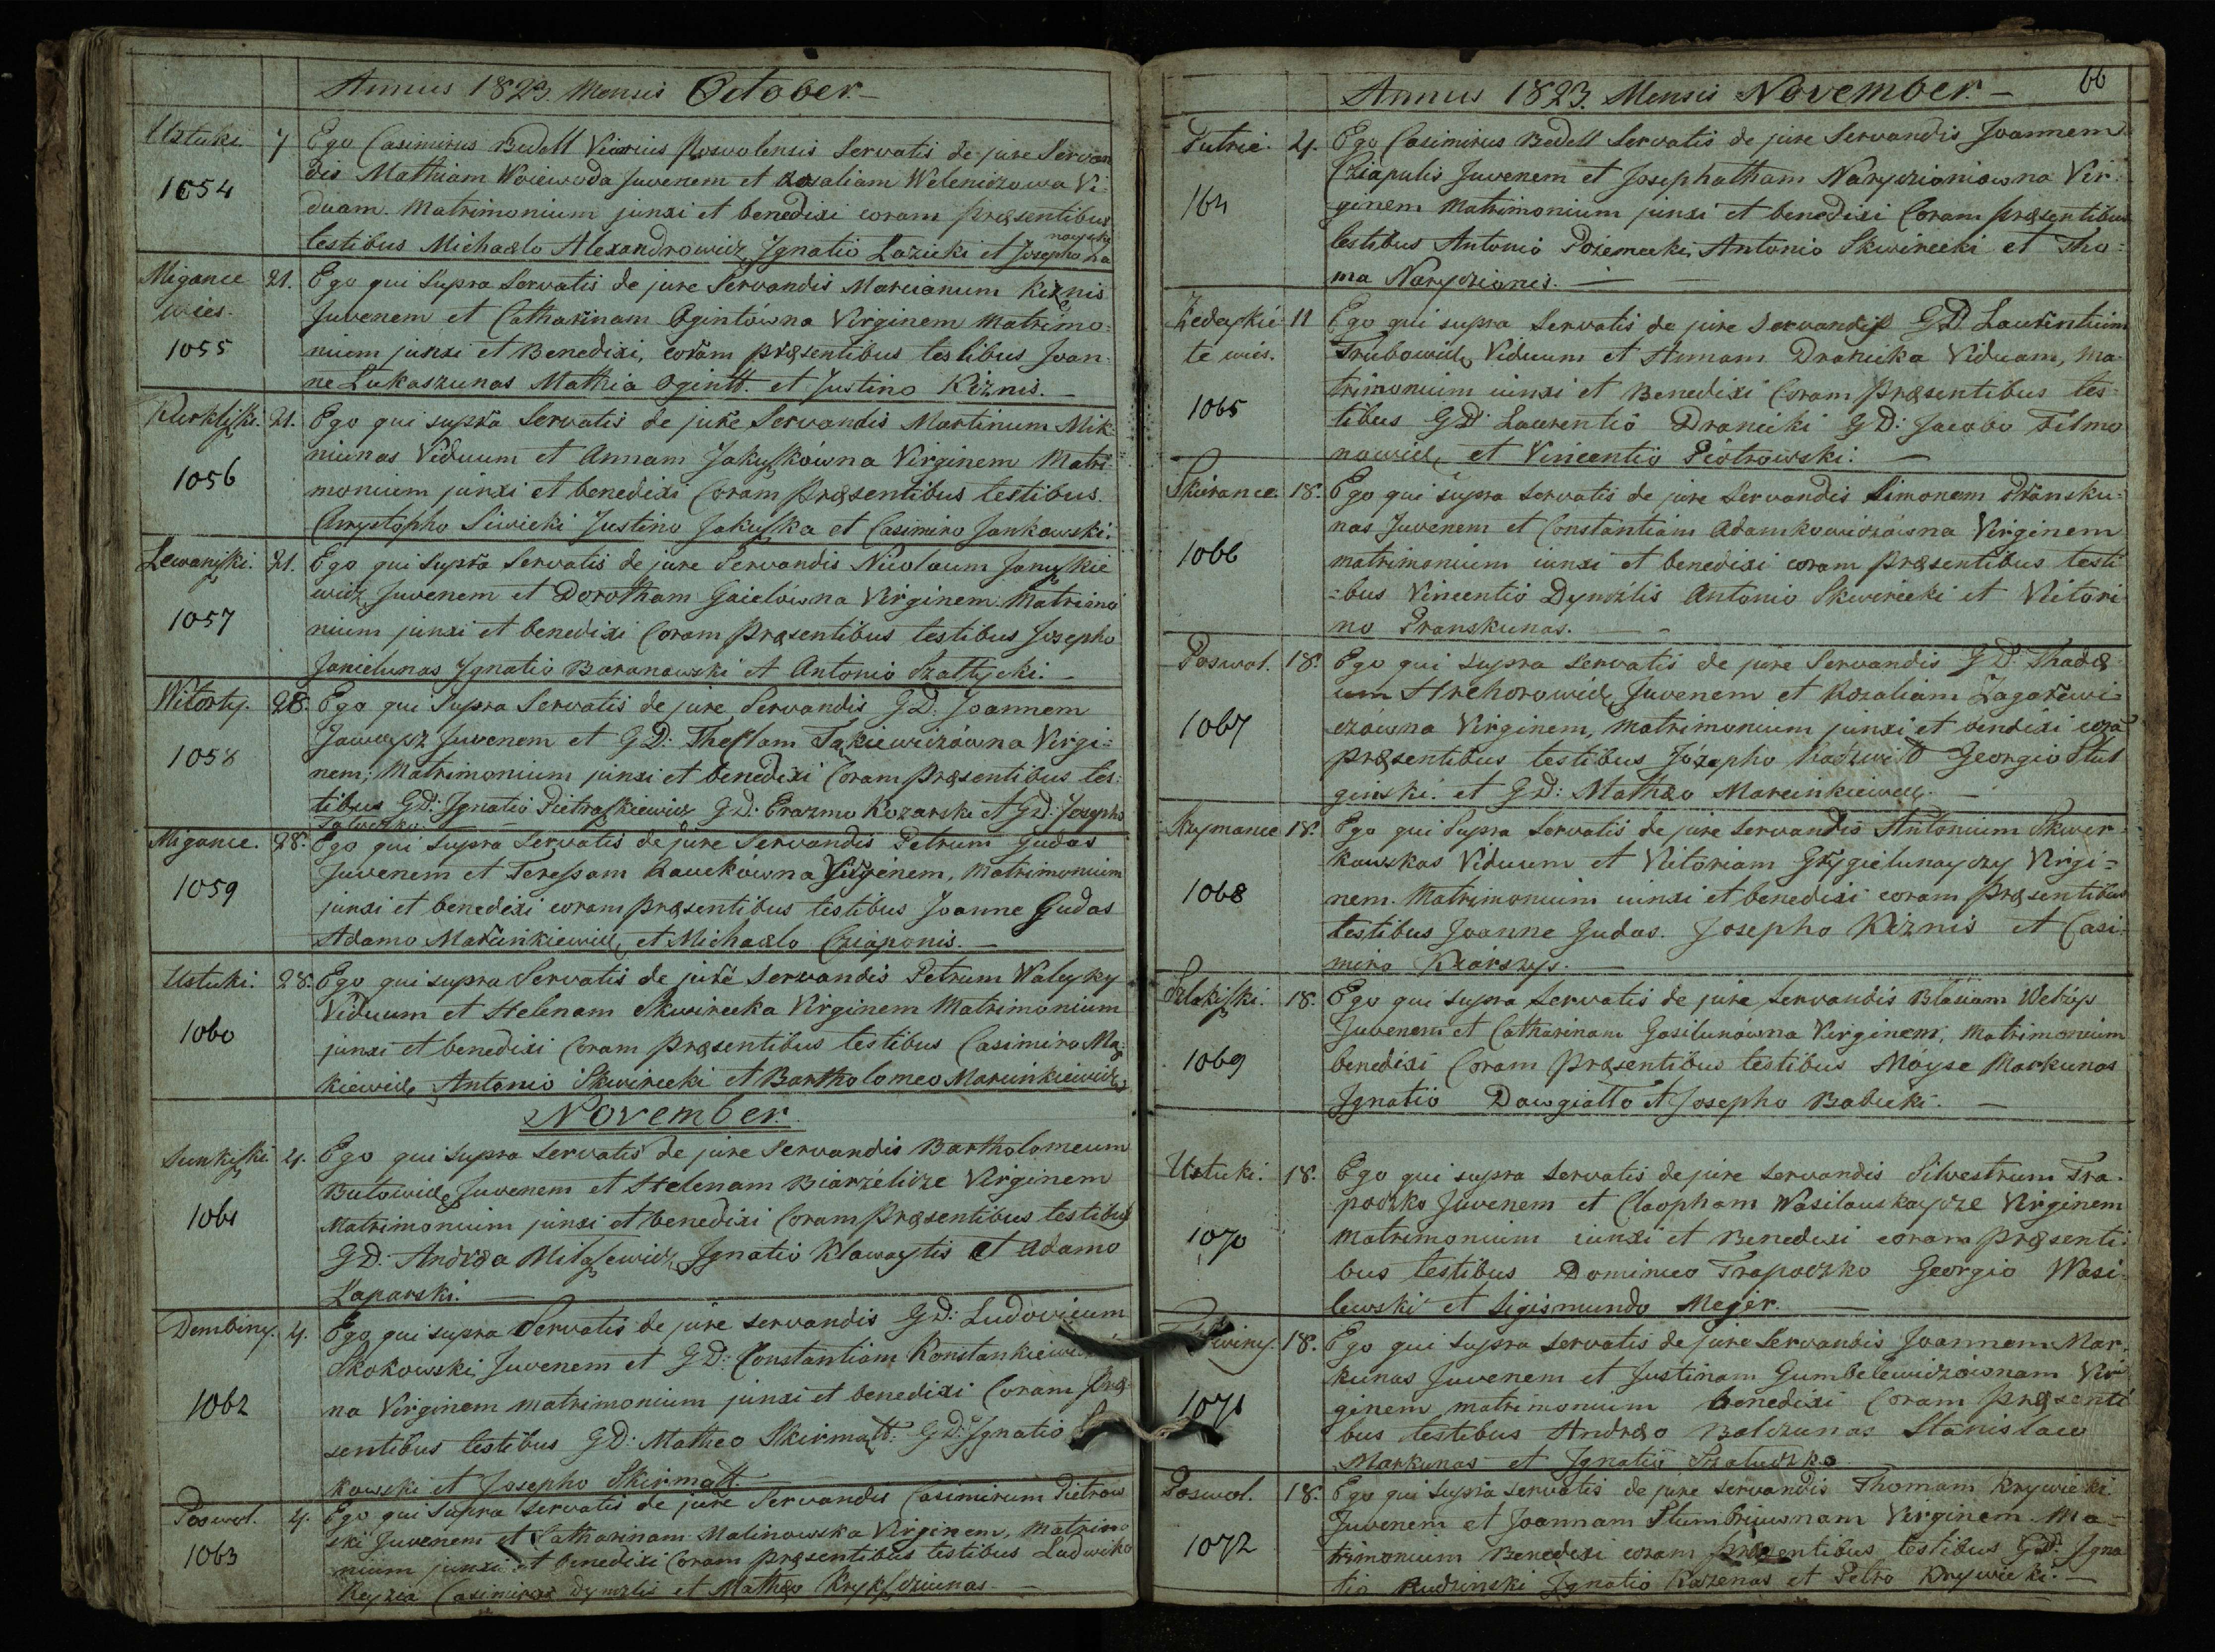 Annus 1823. Mensis October.—
Ustuki 7 Ego Casimirus Bedell Vicarius Poswolensis Servatis de jure Servan
dis Mathiam Wojewoda Juvenem et Rosaliam Weleniczowa Vi-
1054
duam. Matrimonium junxi et benedixi coram præsentibus
testibus Michaelo Alexandrowicz Ignatio Lazicki et Josepho
Migance 21. Ego qui supra Servatis de jure Servandis Marcianum Kiznis
wies. Juvenem et Catharinam Ogintówna Virginem Matrimo-
1055 nium junxi et Benedixi, coram præsentibus testibus Joan-
ne Lukaszunas Mathia Ogintt. et Justino Kiznis.—
21. Ego qui supra Servatis de jure Servandis Martinum Mik-
niunas Viduum et Annam Jakuszkówna Virginem Matri-
1056 monium junxi et benedixi Coram præsentibus testibus.
Chrystopho Siwicki Justino Jakuszka et Casimiro Jankowski.
21. Ego qui supra Servatis de jure Servandis Nicolaum
Juvenem et Dorotham Gaielówna Virginem Matrimo
1057 nium junxi et benedixi Coram præsentibus testibus Josepho
Janielunas Ignatio Baranowski et Antonio
28. Ego qui Supra Servatis de jure Servandis GD. Joannem
Juvenem et GD: Virgi-
1058 nem; Matrimonium junxi et benedixi Coram præsentibus tes:
tibus GD: Ignatio Pietraszkiewicz GD: Erazmo Kozarski et GD: Josepho
Migance. 28. Ego qui Supra Servatis de jure Servandis Petrum Gudas
Juvenem et Teressam Virginem, Matrimonium
1059 junxi et benedixi coram præsentibus testibus Joanne Gudas
Adamo Marcinkiewicz et Michaelo Cziaponis.—
Ustuki. 28. Ego qui supra Servatis de jure Servandis Petrum
Viduum et Helenam Skwirecka Virginem Matrimonium
1060 junxi et benedixi Coram præsentibus testibus Casimiro
kiewicz Antonio Skwirecki et Bartholomeo Marcinkiewicz
November.
4. Ego qui supra Servatis de jure Servandis Bartholomeum
Butowicz Juvenem et Helenam Virginem
1061 Matrimonium junxi et benedixi Coram præsentibus testibus
GD: Andrea Ignatio Klawaytis et Adamo
Laparski.—
Dembiny. 4. Ego qui supra Servatis de jure servandis GD: Ludovicum
Skokowski Juvenem et GD: Constantiam
1062 na Virginem matrimonium junxi et benedixi Coram præ-
sentibus testibus GD: Matheo Skirmatt. GD: Ignatio
kowski et Josepho Skirmatt.
Poswol. 4. Ego qui Supra Servatis de jure Servandis Casimirum Pietrow
ski Juvenem et Catharinam Malinowska Virginem, Matrimo
1063 nium junxi et benedixi Coram præsentibus testibus Ludwiko
Casimiro Dymzlis et Matheo
Annus 1823. Mensis November.— 66
4. Ego Casimirus Bedell Servatis de jure Servandis Joannem
Cziapulis Juvenem et Josephatham Narydzioniowna Vir:
164 ginem Matrimonium junxi et benedixi Coram præsentibus
testibus Antonio Pożemecki, Antonio Skwirecki et Tho-
ma Narydzionis.—
11 Ego qui supra Servatis de jure Servandis GD. Laurentium
te wies. Trubowicz Viduum et Annam Dranicka Viduam, ma-
trimonium iunxi et Benedixi Coram Præsentibus tes-
1065 tibus GD: Laurentio Dranicki GD: Jacobo Filmo
nowicz et Vincentio Piotrowski.—
18. Ego qui supra servatis de jure Servandis Simonem Pransku-
nas Juvenem et Constantiam Adamkowiczówna Virginem
1066 matrimonium iunxi et benedixi coram præsentibus testi
-bus Vincentio Dymżlis Antonio Skwirecki et Victori
no Pranskunas.—
Poswol. 18. Ego qui supra servatis de jure Servandis GD: Thadæ
um Hrehorowicz Juvenem et Rozaliam Zagarewi-
1067 czówna Virginem, Matrimonium junxi et bendixi cora
præsentibus testibus Józepho Radziwill Georgio Stul
ginski. et GD: Mathæo Marcinkiewicz.—
18. Ego qui Supra Servatis de jure servandis Antonium Skwer-
kowskas Viduum et Victoriam Virgi-
1068 nem. Matrimonium iunxi et benedixi coram præsentibus
testibus Joanne Gudas. Josepho Kiznis et Casi-
miro
18. Ego qui supra Servatis de jure Servandis Blasium
Juvenem et Catharinam Gasilunówna Virginem, Matrimonium
1069 benedixi Coram præsentibus testibus Moyse Markunas
Ignatio Dowgiatto et Josepho Babicki.—
Ustuki. 18. Ego qui supra servatis de jure servandis Silvestrum Tra-
poczko Juvenem et Cleopham Wasilauskaydze Virginem
1070 Matrimonium iunxi et Benedixi coram præsenti-
bus testibus Dominico Trapoczko Georgio Wasi-
lewski et Sigismundo Mejer.—
18. Ego qui supra servatis de jure Servandis Joannem Mar-
kunas Juvenem et Justinam Gumbelewiczównam Vir
1071 ginem matrimonium benedixi Coram præsenti
bus testibus Andræo Balczunas Stanislao
Markunas et Ignatio
Poswol. 18. Ego qui supra servatis de jure servandis Thomam Krywicki
Juvenem et Joannam Virginem Ma-
1072 trimonium Benedixi coram præsentibus testibus GD. Igna
tio Rudzinski Ignatio et Petro Krywicki.—